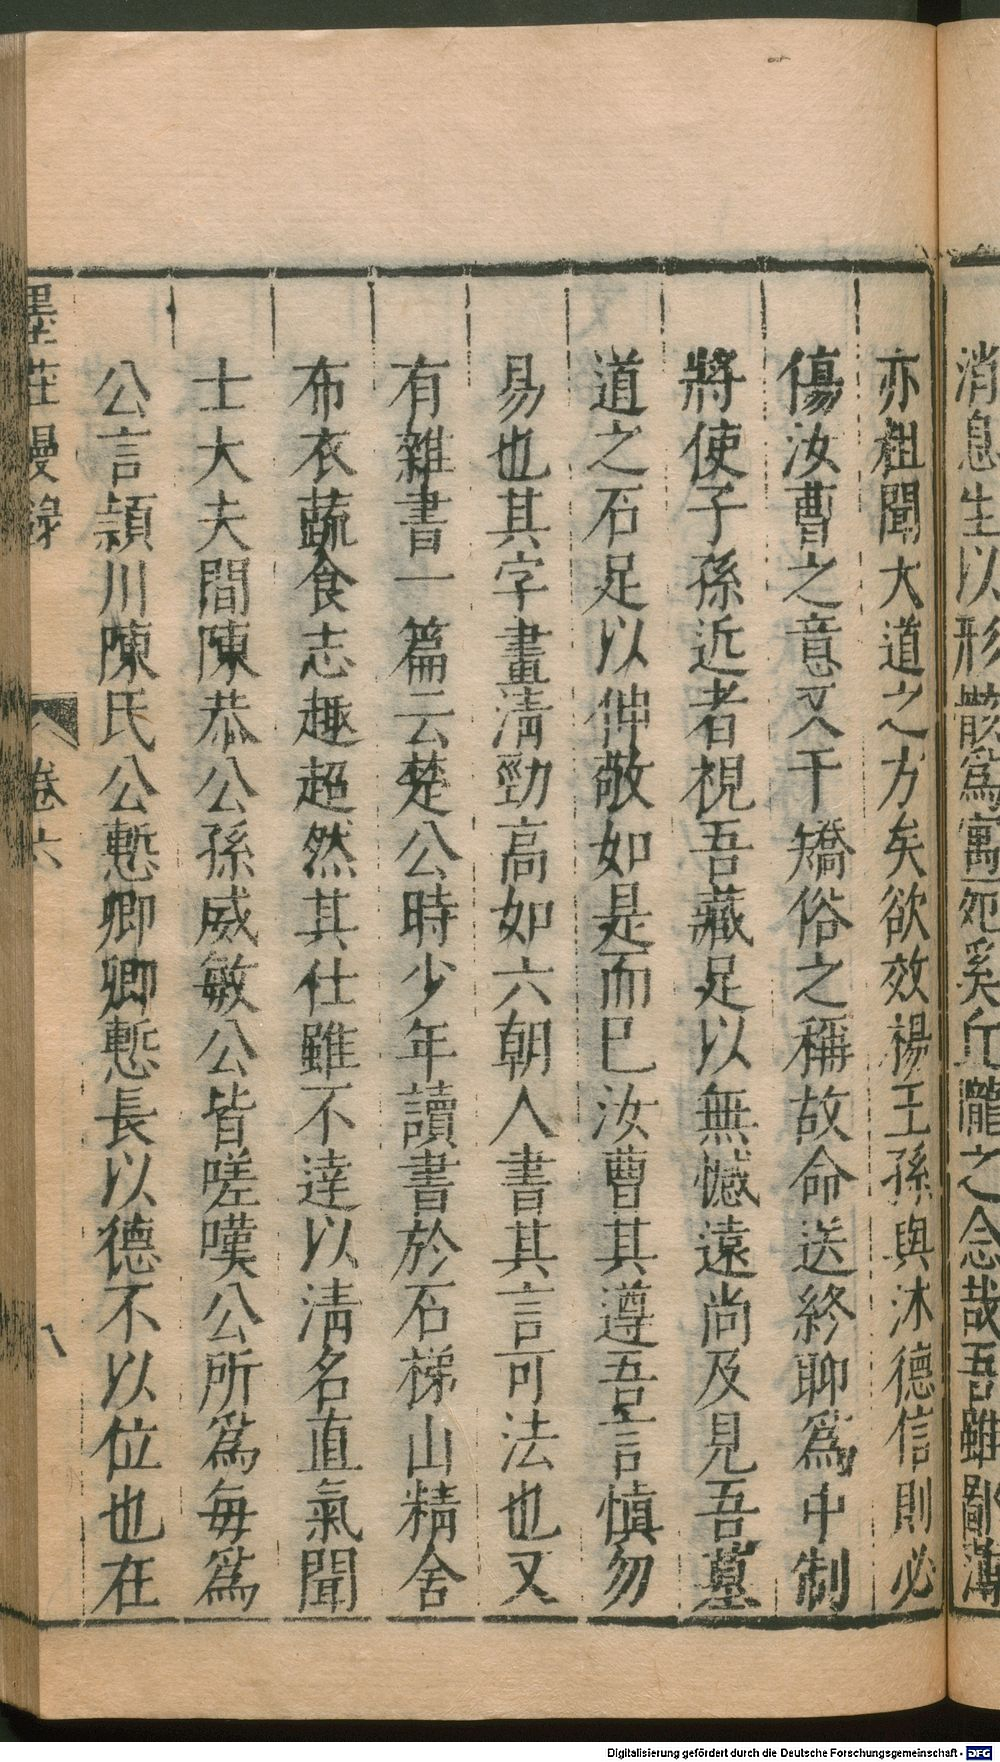 消息生以形骸爲寓宛奚丘隴之念哉吾雖鄙薄
亦粗聞大道之方矣欲效楊王孫與沐德信則必
傷汝曹之意又干矯俗之稱故命送終聊爲中制
將使子孫近者視吾藏足以無憾遠尚及見吾墓
道之石足以仲敬如是而已汝曹其遵吾言慎勿
易也其字畫淸勁高如六朝人書其言可法也又
有雜書一篇云楚公時少年讀書於石梯山精舍
布衣蔬食志趣超然其仕雖不逹以淸名直氣聞
士大夫間陳恭公孫威敏公皆嗟嘆公所爲每爲
公言頴川陳氏公慙卿卿慙長以德不以位也在
墨莊漫錄 卷六 八
Digitalisierung gefördert durch die Deutsche Forschungsgemeinschaft - DFG